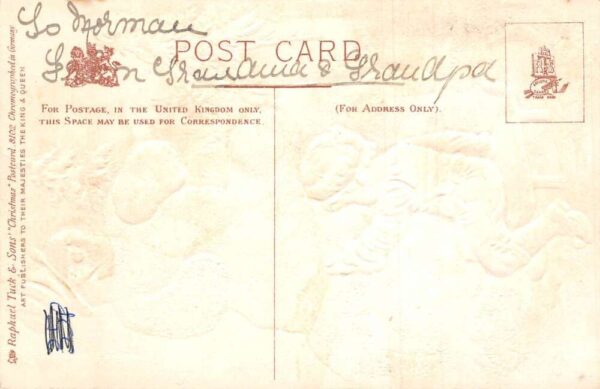 To Norman
POST CARD
From Grandma & Grandpa
FOR POSTAGE, IN THE UNITED KINGDOM ONLY,
THIS SPACE MAY BE USED FOR CORRESPONDENCE.
(FOR ADDRESS ONLY).
TRADE MARK
Raphael Tuck & Sons' "Christmas" Postcard 8102. Chromographed in Germany
ART PUBLISHERS TO THEIR MAJESTIES THE KING & QUEEN